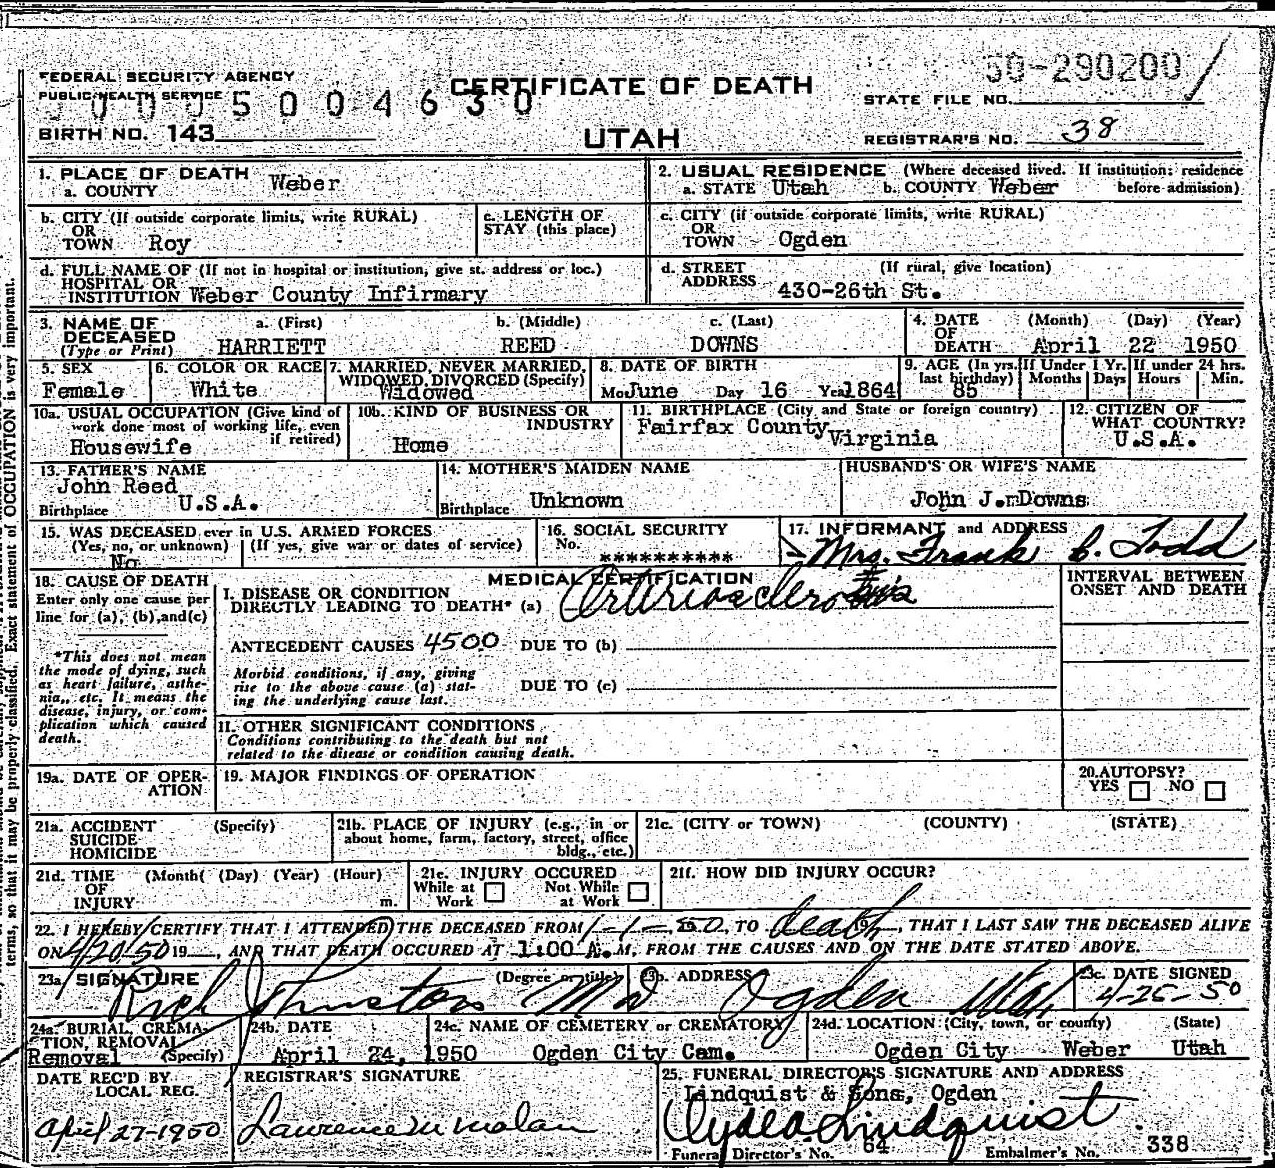 FEDERAL SECURITY AGENCY
PUBLIC HEALTH SERVICE
0005004630
BIRTH NO. 143
CERTIFICATE OF DEATH
UTAH
50-290200
STATE FILE NO.
REGISTRAR'S NO. 38
1. PLACE OF DEATH
a. COUNTY Weber
2. USUAL RESIDENCE (Where deceased lived. If institution: residence before admission)
a. STATE Utah b. COUNTY Weber
b. CITY (If outside corporate limits, write RURAL)
OR
TOWN Roy
c. LENGTH OF
STAY (this place)
c. CITY (if outside corporate limits, write RURAL)
OR
TOWN Ogden
d. FULL NAME OF (If not in hospital or institution, give st. address or loc.)
HOSPITAL OR
INSTITUTION Weber County Infirmary
d. STREET (If rural, give location)
ADDRESS 430-26th St.
3. NAME OF DECEASED
(Type or Print)
a. (First) HARRIETT
b. (Middle) REED
c. (Last) DOWNS
4. DATE OF DEATH (Month) (Day) (Year)
April 22 1950
5. SEX
Female
6. COLOR OR RACE
White
7. MARRIED, NEVER MARRIED,
WIDOWED, DIVORCED (Specify)
Widowed
8. DATE OF BIRTH
Mo June Day 16 Yr 1864
9. AGE (In yrs. last birthday)
85
If Under 1 Yr.
Months Days
If under 24 hrs.
Hours Min.
10a. USUAL OCCUPATION (Give kind of
work done most of working life, even
if retired)
Housewife
10b. KIND OF BUSINESS OR
INDUSTRY
Home
11. BIRTHPLACE (City and State or foreign country)
Fairfax County, Virginia
12. CITIZEN OF
WHAT COUNTRY?
U.S.A.
13. FATHER'S NAME
John Reed
Birthplace U.S.A.
14. MOTHER'S MAIDEN NAME
Birthplace Unknown
HUSBAND'S OR WIFE'S NAME
John J. Downs
15. WAS DECEASED ever in U.S. ARMED FORCES
(Yes, no, or unknown) (If yes, give war or dates of service)
No
16. SOCIAL SECURITY
No. **********
17. INFORMANT and ADDRESS
Mrs. Frank C. Todd
18. CAUSE OF DEATH
Enter only one cause per
line for (a), (b), and (c)
*This does not mean
the mode of dying, such
as heart failure, asthe-
nia, etc. It means the
disease, injury, or com-
plication which caused
death.
MEDICAL CERTIFICATION
I. DISEASE OR CONDITION
DIRECTLY LEADING TO DEATH* (a) Arteriosclerosis
ANTECEDENT CAUSES 4500 DUE TO (b)
Morbid conditions, if any, giving
rise to the above cause (a) stat-
ing the underlying cause last.
DUE TO (c)
II. OTHER SIGNIFICANT CONDITIONS
Conditions contributing to the death but not
related to the disease or condition causing death.
INTERVAL BETWEEN
ONSET AND DEATH
19a. DATE OF OPER-
ATION
19. MAJOR FINDINGS OF OPERATION
20. AUTOPSY?
YES NO
21a. ACCIDENT (Specify)
SUICIDE
HOMICIDE
21b. PLACE OF INJURY (e.g., in or
about home, farm, factory, street, office
bldg., etc.)
21c. (CITY or TOWN) (COUNTY) (STATE)
21d. TIME (Month( (Day) (Year) (Hour)
OF
INJURY m.
21e. INJURY OCCURED
While at Work Not While at Work
21f. HOW DID INJURY OCCUR?
22. I HEREBY CERTIFY THAT I ATTENDED THE DECEASED FROM 1-1-, 50, TO death, 19, THAT I LAST SAW THE DECEASED ALIVE
ON 4/20/50 19, AND THAT DEATH OCCURED AT 1:00 A.M, FROM THE CAUSES AND ON THE DATE STATED ABOVE.
23a. SIGNATURE (Degree or title)
Rich Johnston MD
23b. ADDRESS
Ogden Utah
23c. DATE SIGNED
4-25-50
24a. BURIAL, CREMA-
TION, REMOVAL
Removal (Specify)
24b. DATE
April 24, 1950
24c. NAME OF CEMETERY or CREMATORY
Ogden City Cem.
24d. LOCATION (City, town, or county) (State)
Ogden City Weber Utah
DATE REC'D BY
LOCAL REG.
April 27-1950
REGISTRAR'S SIGNATURE
Laurence M Malan
25. FUNERAL DIRECTOR'S SIGNATURE AND ADDRESS
Lindquist & Sons, Ogden
Clyde A. Lindquist
Funeral Director's No. 64 Embalmer's No. 338
terms, so that it may be properly classified. Exact statement of OCCUPATION is very important.